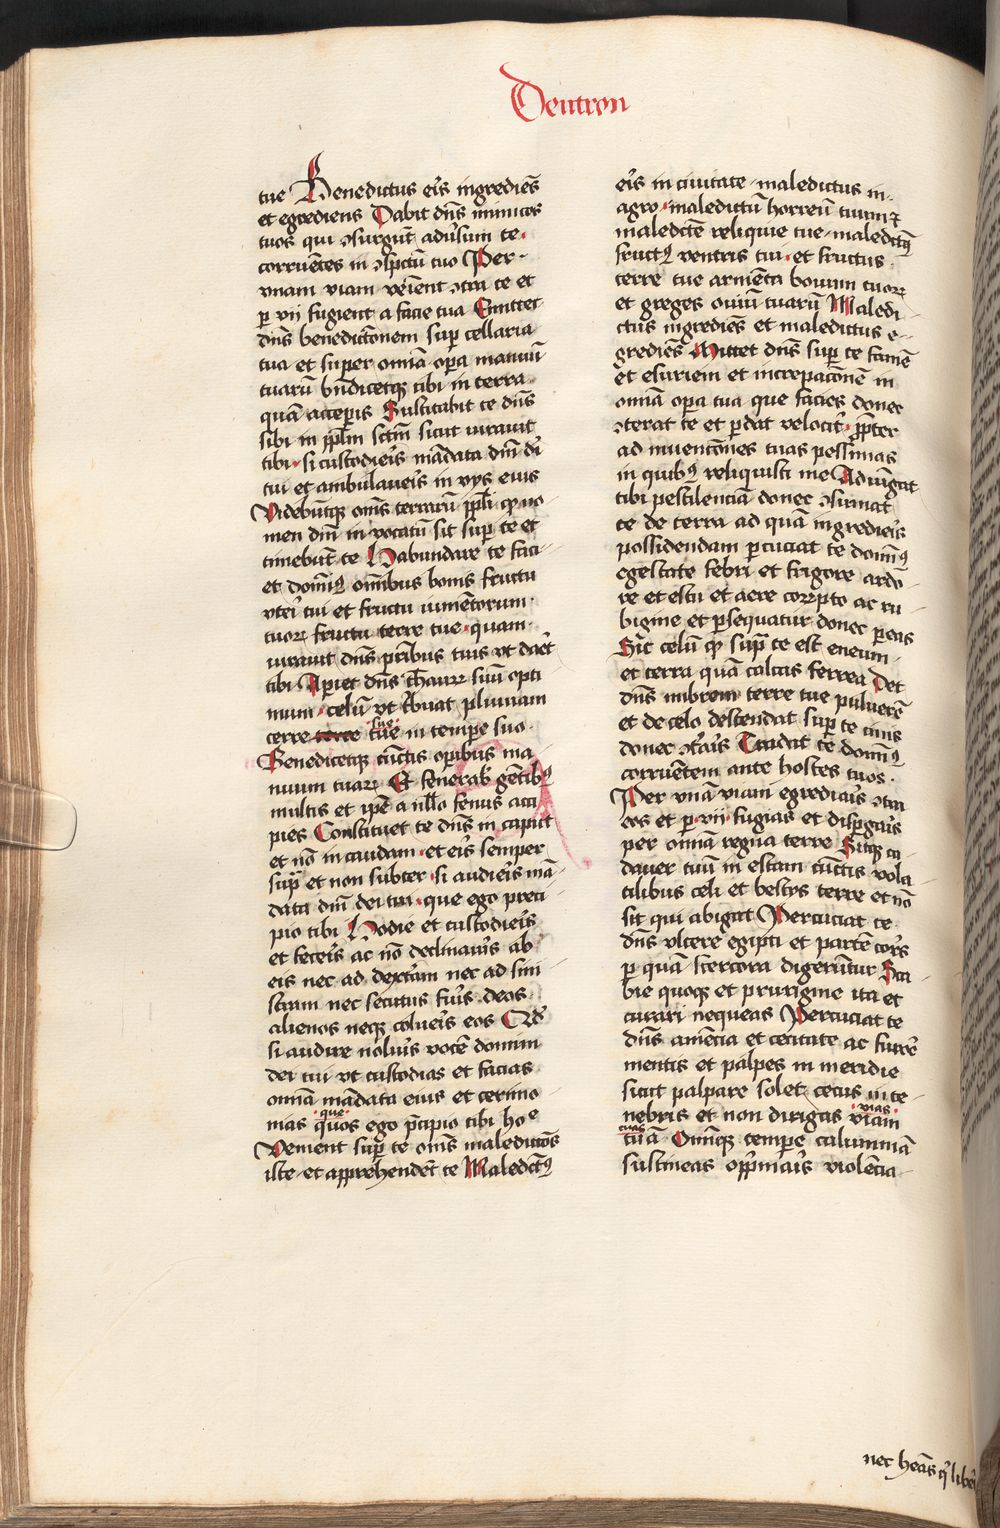 Deutron
tue Benedictus eīs ingrediēs
et egrediens Dabit dn̄s inimicos
tuos qui ꝯsurgūt adūsum te
corruētes in ꝯspctū tuo Per
vnam viam veīent ꝯtra te et
ꝑ vii fugient a facie tua Emittet
dn̄s benedictōnem suꝑ cellaria
tua et super omīa oꝑa manuū
tuarū bn̄dicetqꝫ tibi in terra
quā acceꝑis Suscitabit te dn̄s
sibi in ppl̄m sctm̄ sicut iurauit
tibi si custodieīs mādata dn̄i dī
tui et ambulaueīs in vijs eius
Videbūtqꝫ om̄s terrarū ppl̄i qꝫ no
men dn̄i in vocatū sit suꝑ te et
timebūt te Habundare te faci
et domīꝰ om̄ibus bonis fructu
vteī tui et fructu iumētorum
tuorꝝ fructu terre tue quam
iurauit dn̄s pr̄ibus tuis vt daēt
tibi Aperiet dn̄s th̄aurꝝ suū opti
mum celū vt t̄buat pluuiam
terre terre tue in tempe suo
sue
Benedicetqꝫ cūctis opibus ma
nuum tuarꝝ Et fenerab̄ gētibꝰ
multis et ipē a nllo fenus acci
pies Constituet te dn̄s in caput
et nō in caudam et eīs semper
supͣ et non subter si audieīs mā
data dn̄i dei tui que ego preci
pio tibi Hodie et custodieīs
et feceīs ac nō declinaūis ab
eis nec ad dextr̄am nec ad sini
stram nec secutus fūis deos
alienos neqꝫ colueīs eos Qd̄
si audire noluīs vocē domini
dei tui vt custodias et facias
omīa mādata eius et cerimo
nias quos ego p̄cipio tibi hoe
que
Venient suꝑ te om̄s maledictōes
iste et apprehendēt te Maledictꝰ
eīs in ciuitate maledictus in
agro maledictū horreū tuum et
maledicte reliquie tue maledictꝰ
fructꝰ ventris tui et fructus
terre tue armēta bouum tuorꝝ
et greges ouiū tuarū Maledi
ctus ingrediēs et maledictus e
grediēs Mittet dn̄s suꝑ te famē
et esuriem et increpacōnē in
omīa oꝑa tua que facies donec
ꝯterat te et ꝑdat velocit̄ ꝓpter
ad inuentōnes tuas pessimas
in quibꝰ reliquisti me Adiūgat
tibi pestilenciā donec ꝯsumat
te de terra ad quā ingredieīs
possidendam ꝑcuciat te domīꝰ
egestate febri et frigore ardo
re et estu et aere corrꝑto ac ru
bigine et ꝑsequatur donec ꝑeas
Sit celū qꝫ supͣ te est eneum
et terra quā calcas ferrea Det
dn̄s imbrem terre tue puluerē
et de celo descendat suꝑ te cinis
donec ꝯtāis Tradat te domīꝰ
corruētem ante hostes tuos
Per vnā viam egrediāis ꝯtra
eos et ꝑ vii fugias et disꝑgāis
per omīa regna terre Sitqꝫ ca
dauer tuū in escam cūctis vola
tilibus celi et bestijs terre et nō
sit qui abigat Percuciat te
dn̄s vlcere egipti et partē corꝑs
ꝑ quā stercora digerūtur Sca
bie quoqꝫ et prurigine ita et
curari nequeas Percuciat te
dn̄s amēcia et cecitate ac furōe
mentis et palpes in meridie
sicut palpare solet cecus in te
nebris et non dirigas viam
vias
tuas
tuā Omīqꝫ tempe calumniā
sustineas opp̄maīs violēcia
nec h̄eās qͥ libēt